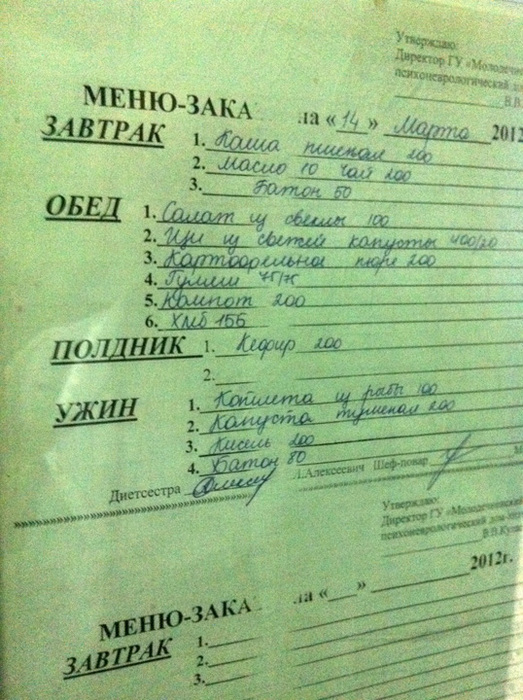 Утверждаю:
Директор ГУ «Молодечне
психоневрологический до
В.В.
МЕНЮ-ЗАКА ла «14» Марта 2012
ЗАВТРАК
1. Каша пшенная 200
2. Масло 10 чай 200
3. Батон 50
ОБЕД
1. Салат из свеклы 100
2. Щи из свежей капусты 400/20
3. Картофельное пюре 200
4. Гуляш 75/75
5. Компот 200
6. Хлеб 155
ПОЛДНИК
1. Кефир 200
2.
УЖИН
1. Котлета из рыбы 100
2. Капуста тушеная 200
3. Кисель 200
4. Батон 80
Диетсестра
Алексеевич Шеф-повар
Утверждаю:
Директор ГУ «Молодечненский
психоневрологический дом
2012г.
МЕНЮ-ЗАКА ла «__»
ЗАВТРАК
1.
2.
3.